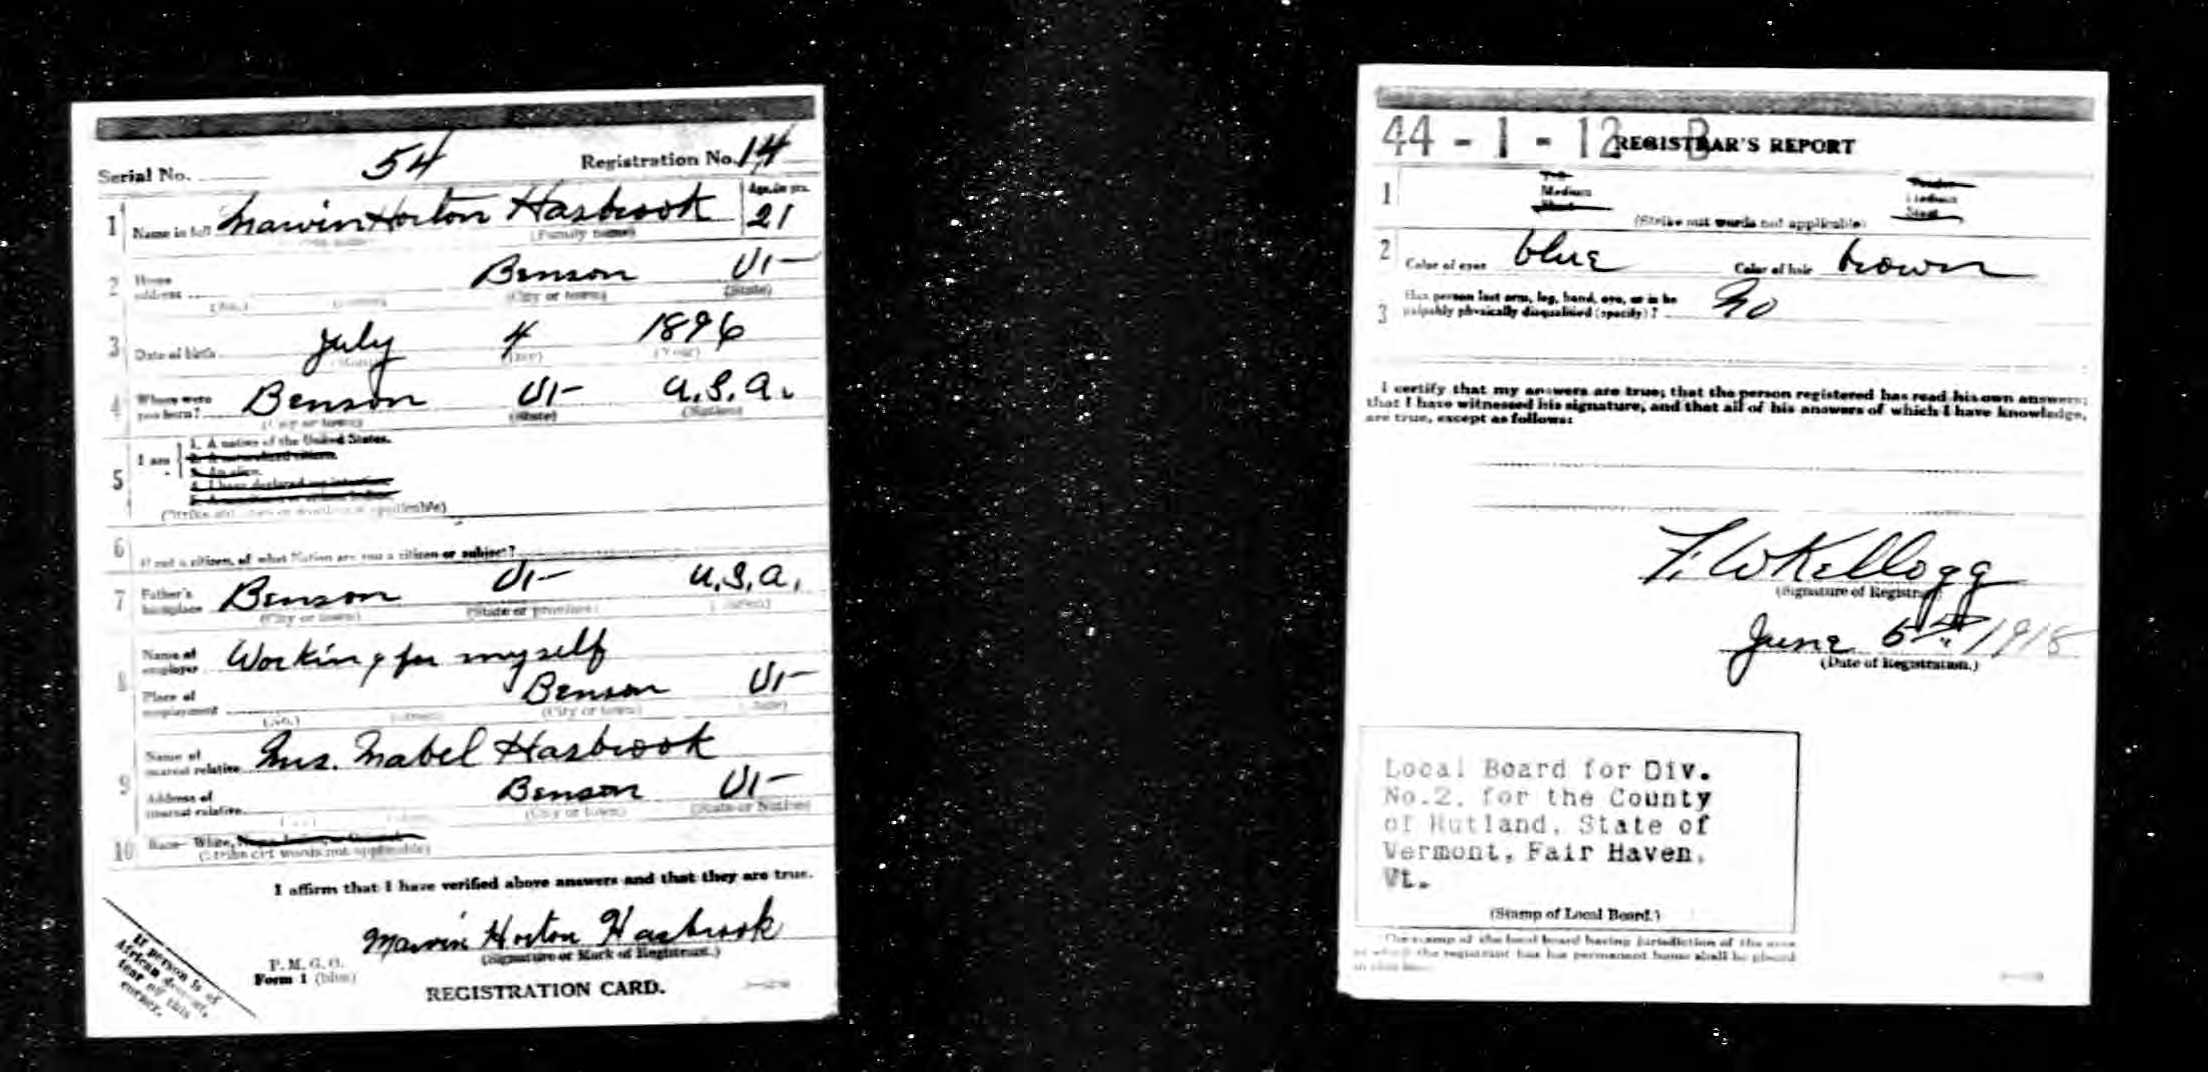 Serial No. 54 Registration No. 14
1 Name in full Marvin Horton Hasbrook Age, in yrs. 21
(Family name)
2 Home address Benson Vt
(No.) (City or town) (State)
3 Date of birth July 4 1896
(Month) (Day) (Year)
4 Where were you born? Benson Vt U.S.A.
(City or town) (State) (Nation)
5 I am 1. A native of the United States.
2. A naturalized citizen.
3. An alien.
4. I have declared my intention
(Strike out lines or words not applicable)
6 If not a citizen, of what Nation are you a citizen or subject?
7 Father's birthplace Benson Vt U.S.A.
(City or town) (State or province) (Nation)
8 Name of employer Working for myself
Place of employment Benson Vt
(No.) (Street) (City or town) (State)
9 Name of nearest relative Mrs. Mabel Hasbrook
Address of nearest relative Benson Vt
(City or town) (State or Nation)
10 Race— White,
(Strike out words not applicable)
I affirm that I have verified above answers and that they are true.
Marvin Horton Hasbrook
(Signature or Mark of Registrant.)
P. M. G. O.
Form 1 (blue)
REGISTRATION CARD.
If person is of
African descent,
tear off this
corner.
44 - 1 - 12 B REGISTRAR'S REPORT
1 Medium Medium
(Strike out words not applicable)
2 Color of eyes blue Color of hair brown
3 Has person lost arm, leg, hand, eye, or is he
palpably physically disqualified (specify)? No
I certify that my answers are true; that the person registered has read his own answers;
that I have witnessed his signature, and that all of his answers of which I have knowledge,
are true, except as follows:
F. W Kellogg
(Signature of Registrar)
June 5th 1918
(Date of Registration.)
Local Board for Div.
No.2, for the County
of Rutland, State of
Vermont, Fair Haven,
Vt.
(Stamp of Local Board.)
The stamp of the local board having jurisdiction of the area
in which the registrant has his permanent home shall be placed
in this box.